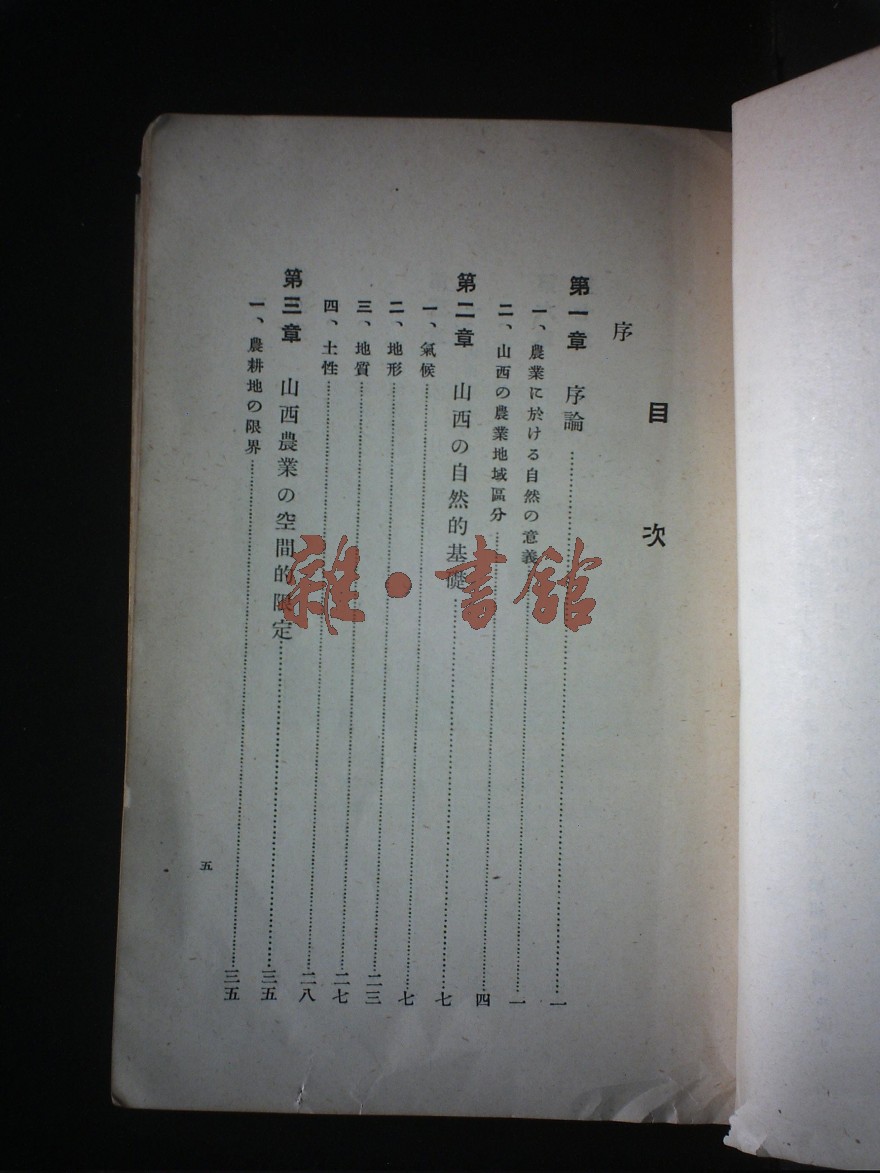 目次
序
第一章 序論…………一
一、農業に於ける自然の意義…………一
二、山西の農業地域區分…………四
第二章 山西の自然的基礎…………七
一、氣候…………七
二、地形…………二三
三、地質…………二七
四、土性…………二八
第三章 山西農業の空間的限定…………三五
一、農耕地の限界…………三五
五
雜·書館